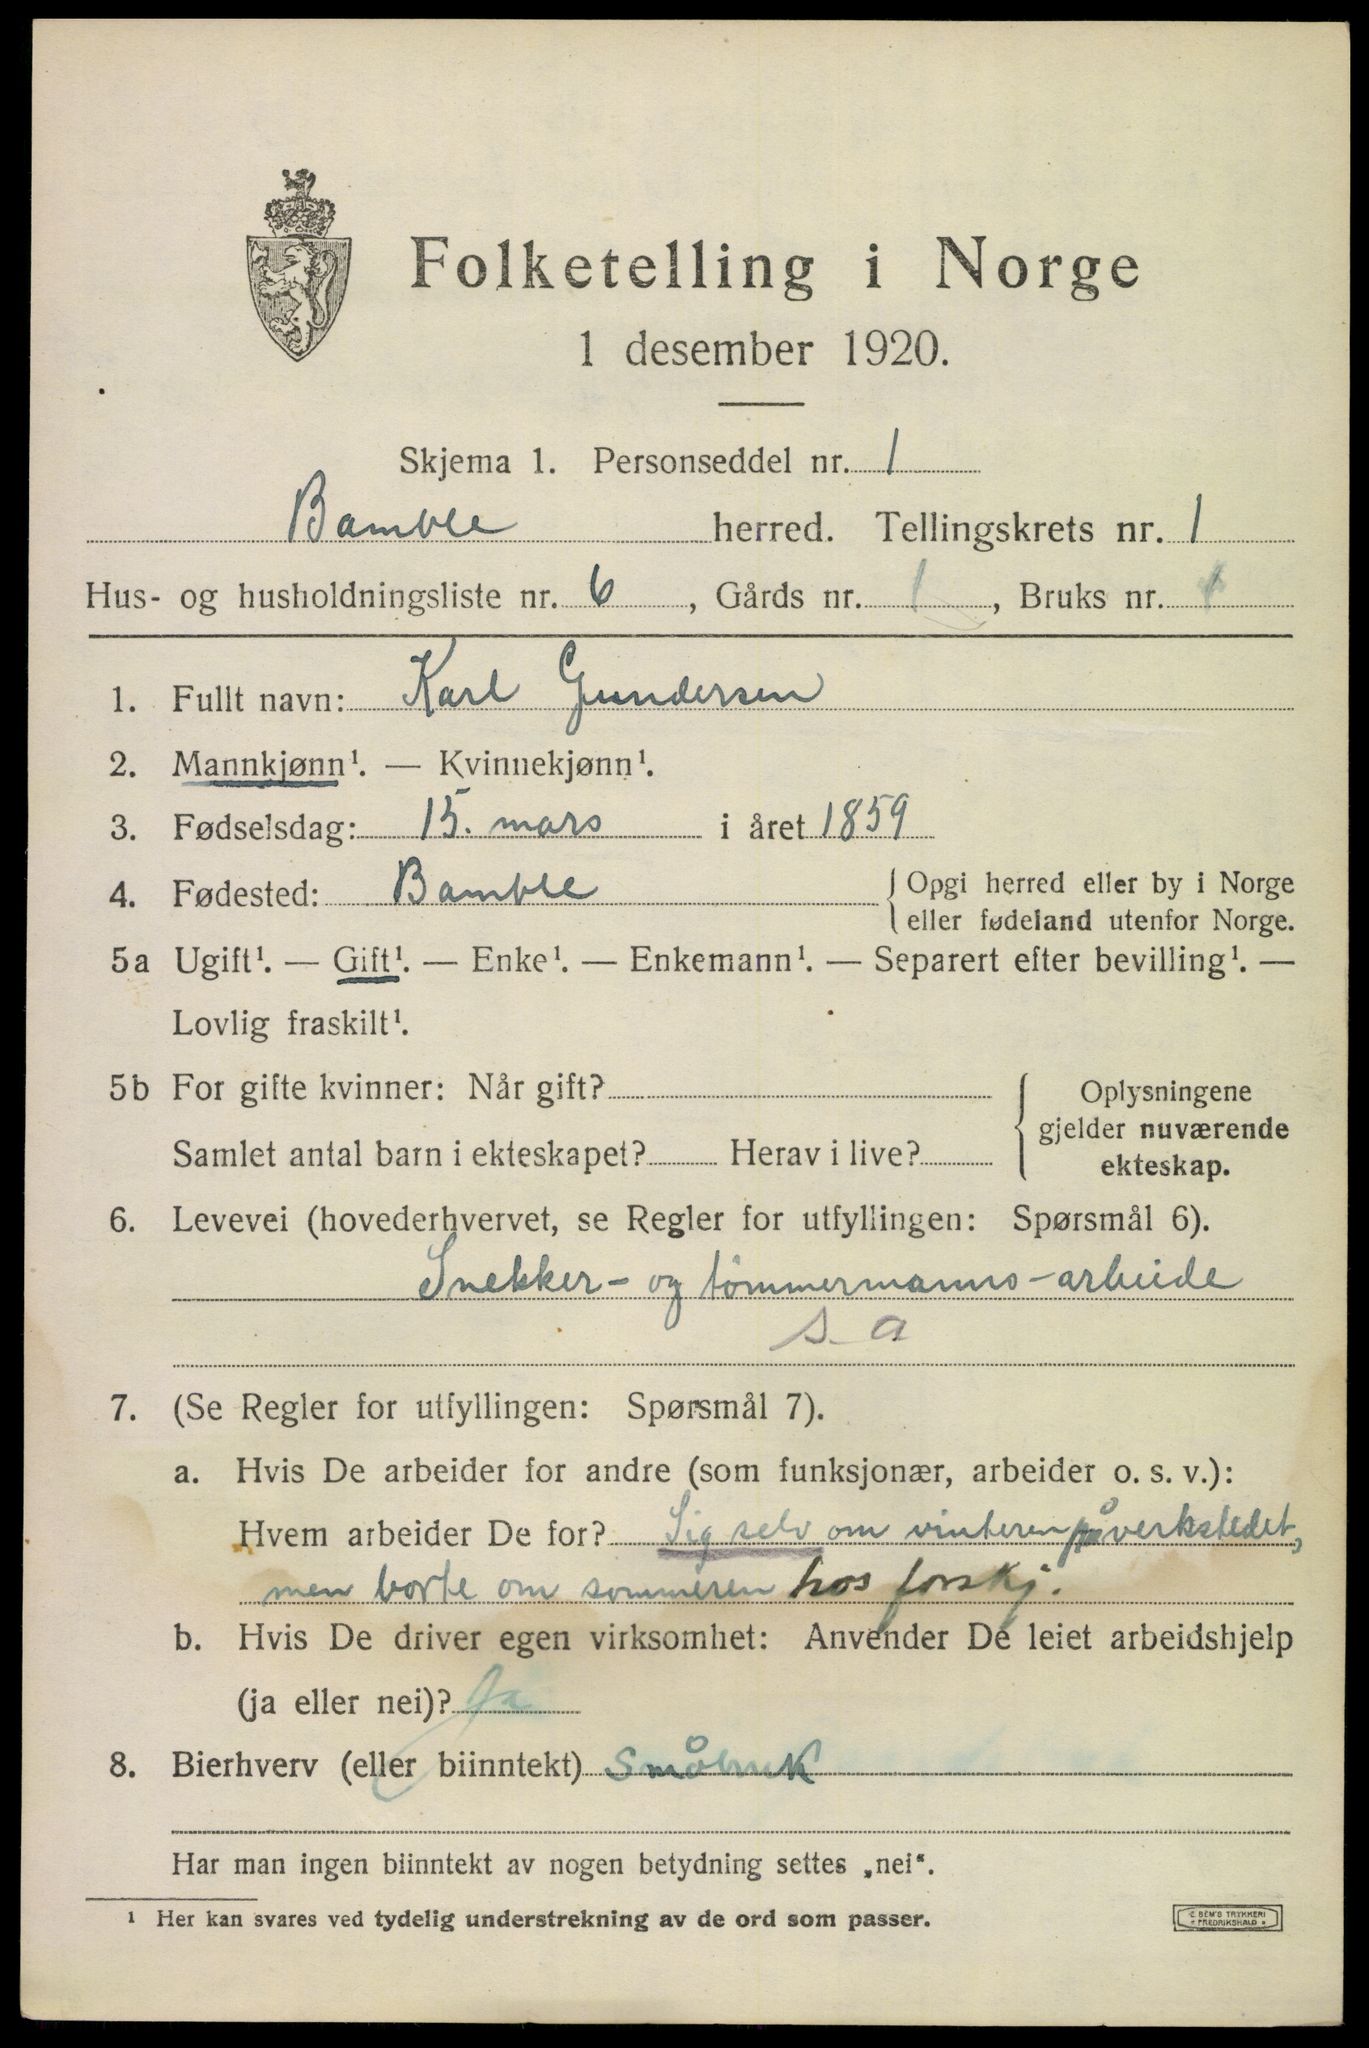 Folketelling i Norge
1 desember 1920.
Skjema 1. Personseddel nr. 1
Bamble herred. Tellingskrets nr. 1
Hus- og husholdningsliste nr. 6, Gårds nr. 1, Bruks nr. 1
1. Fullt navn: Karl Gundersen
2. Mannkjønn¹. — Kvinnekjønn¹.
3. Fødselsdag: 15. mars i året 1859
4. Fødested: Bamble { Opgi herred eller by i Norge
eller fødeland utenfor Norge.
5a Ugift¹. — Gift¹. — Enke¹. — Enkemann¹. — Separert efter bevilling¹. —
Lovlig fraskilt¹.
5b For gifte kvinner: Når gift?
Samlet antal barn i ekteskapet? Herav i live?
{ Oplysningene
gjelder nuværende
ekteskap.
6. Levevei (hovederhvervet, se Regler for utfyllingen: Spørsmål 6).
Snekker- og tömmermanns-arbeide
s a
7. (Se Regler for utfyllingen: Spørsmål 7).
a. Hvis De arbeider for andre (som funksjonær, arbeider o. s. v.):
Hvem arbeider De for? Sig selv om vinteren på verkstedet,
men borte om sommeren hos forskj.
b. Hvis De driver egen virksomhet: Anvender De leiet arbeidshjelp
(ja eller nei)? Ja
8. Bierhverv (eller biinntekt) Småbruk
Har man ingen biinntekt av nogen betydning settes „nei“.
¹ Her kan svares ved tydelig understrekning av de ord som passer.
E. SEM'S TRYKKERI
FREDRIKSHALD